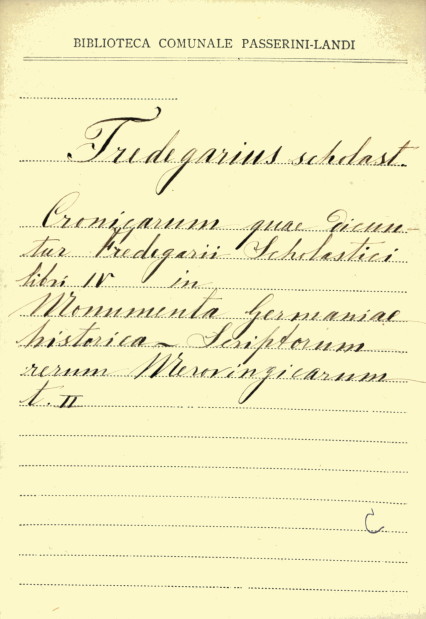 BIBLIOTECA COMUNALE PASSERINI-LANDI
Fredegarius scholast.
Cronicarum quae dicun-
tur Fredegarii Scholastici
libri IV in
Monumenta Germaniae
historica - Scriptorum
rerum Merovingicarum
t. II
C